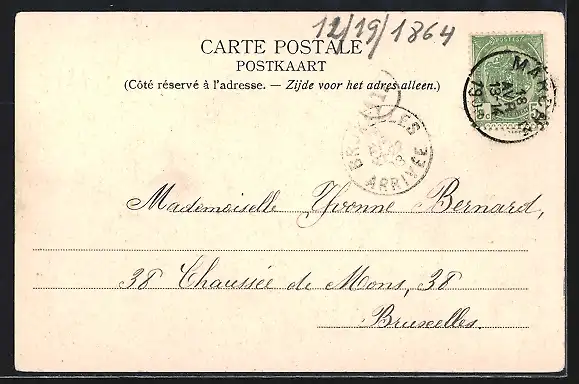 12/19/1864
CARTE POSTALE
POSTKAART
(Côté réservé à l'adresse. — Zijde voor het adres alleen.)
18
AVR
13-14
BRUXELLES
ARRIVÉE
Mademoiselle Yvonne Bernard,
38 Chaussée de Mons, 38
Bruxelles.